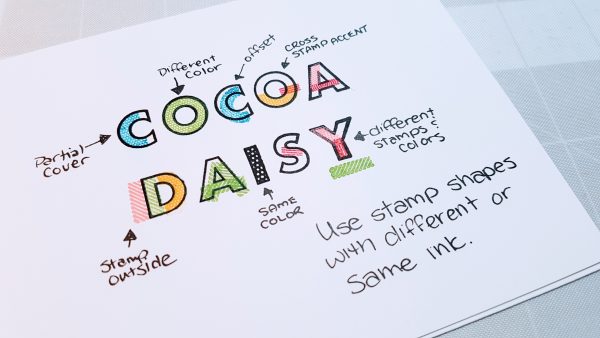 Different
Color
offset
CROSS
STAMP ACCENT
COCOA
Partial
Cover
DAISY
different
stamps &
colors
SAME
COLOR
Stamp
outside
Use stamp shapes
with different or
Same ink.